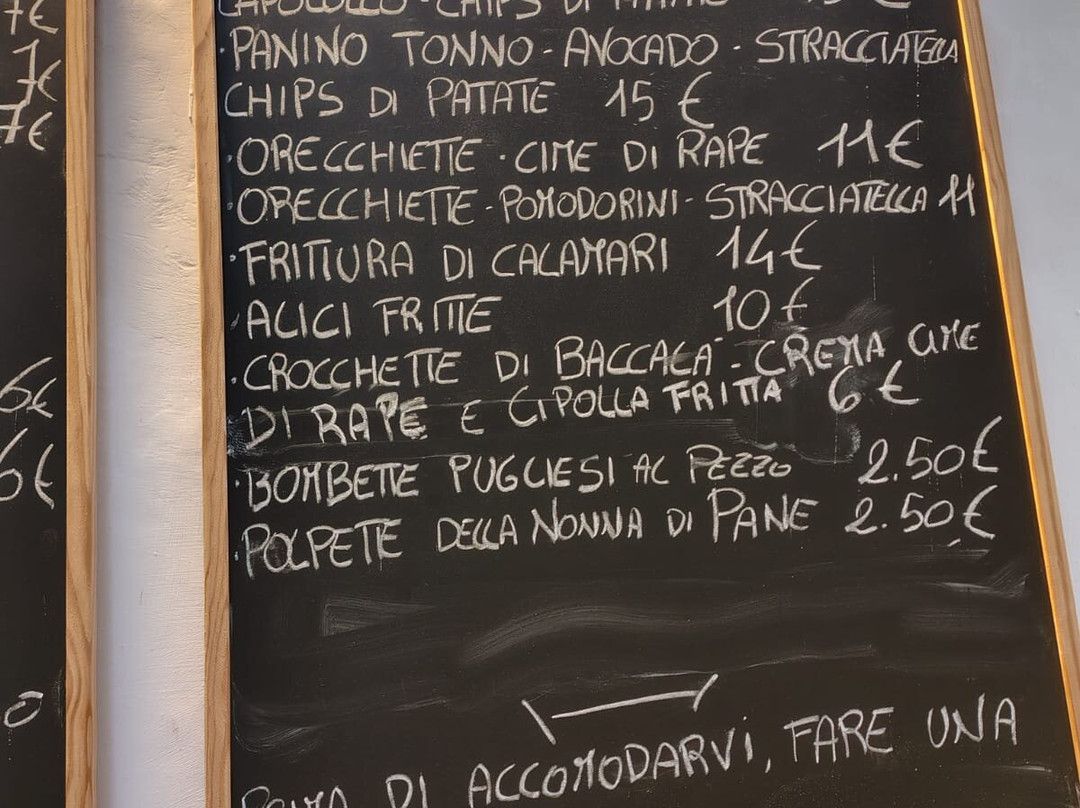 7€
7€
7€
6€
6€
CAPOCOLLO - CHIPS DI PATATE 15 €
· PANINO TONNO - AVOCADO - STRACCIATELLA
CHIPS DI PATATE 15 €
· ORECCHIETTE · CIME DI RAPE 11€
· ORECCHIETTE - POMODORINI - STRACCIATELLA 11
· FRITTURA DI CALAMARI 14€
· ALICI FRITTE 10€
· CROCCHETTE DI BACCALA' - CREMA CIME
DI RAPE E CIPOLLA FRITTA 6€
· BOMBETTE PUGLIESI AL PEZZO 2.50€
· POLPETTE DELLA NONNA DI PANE 2.50€
PRIMA DI ACCOMODARVI, FARE UNA